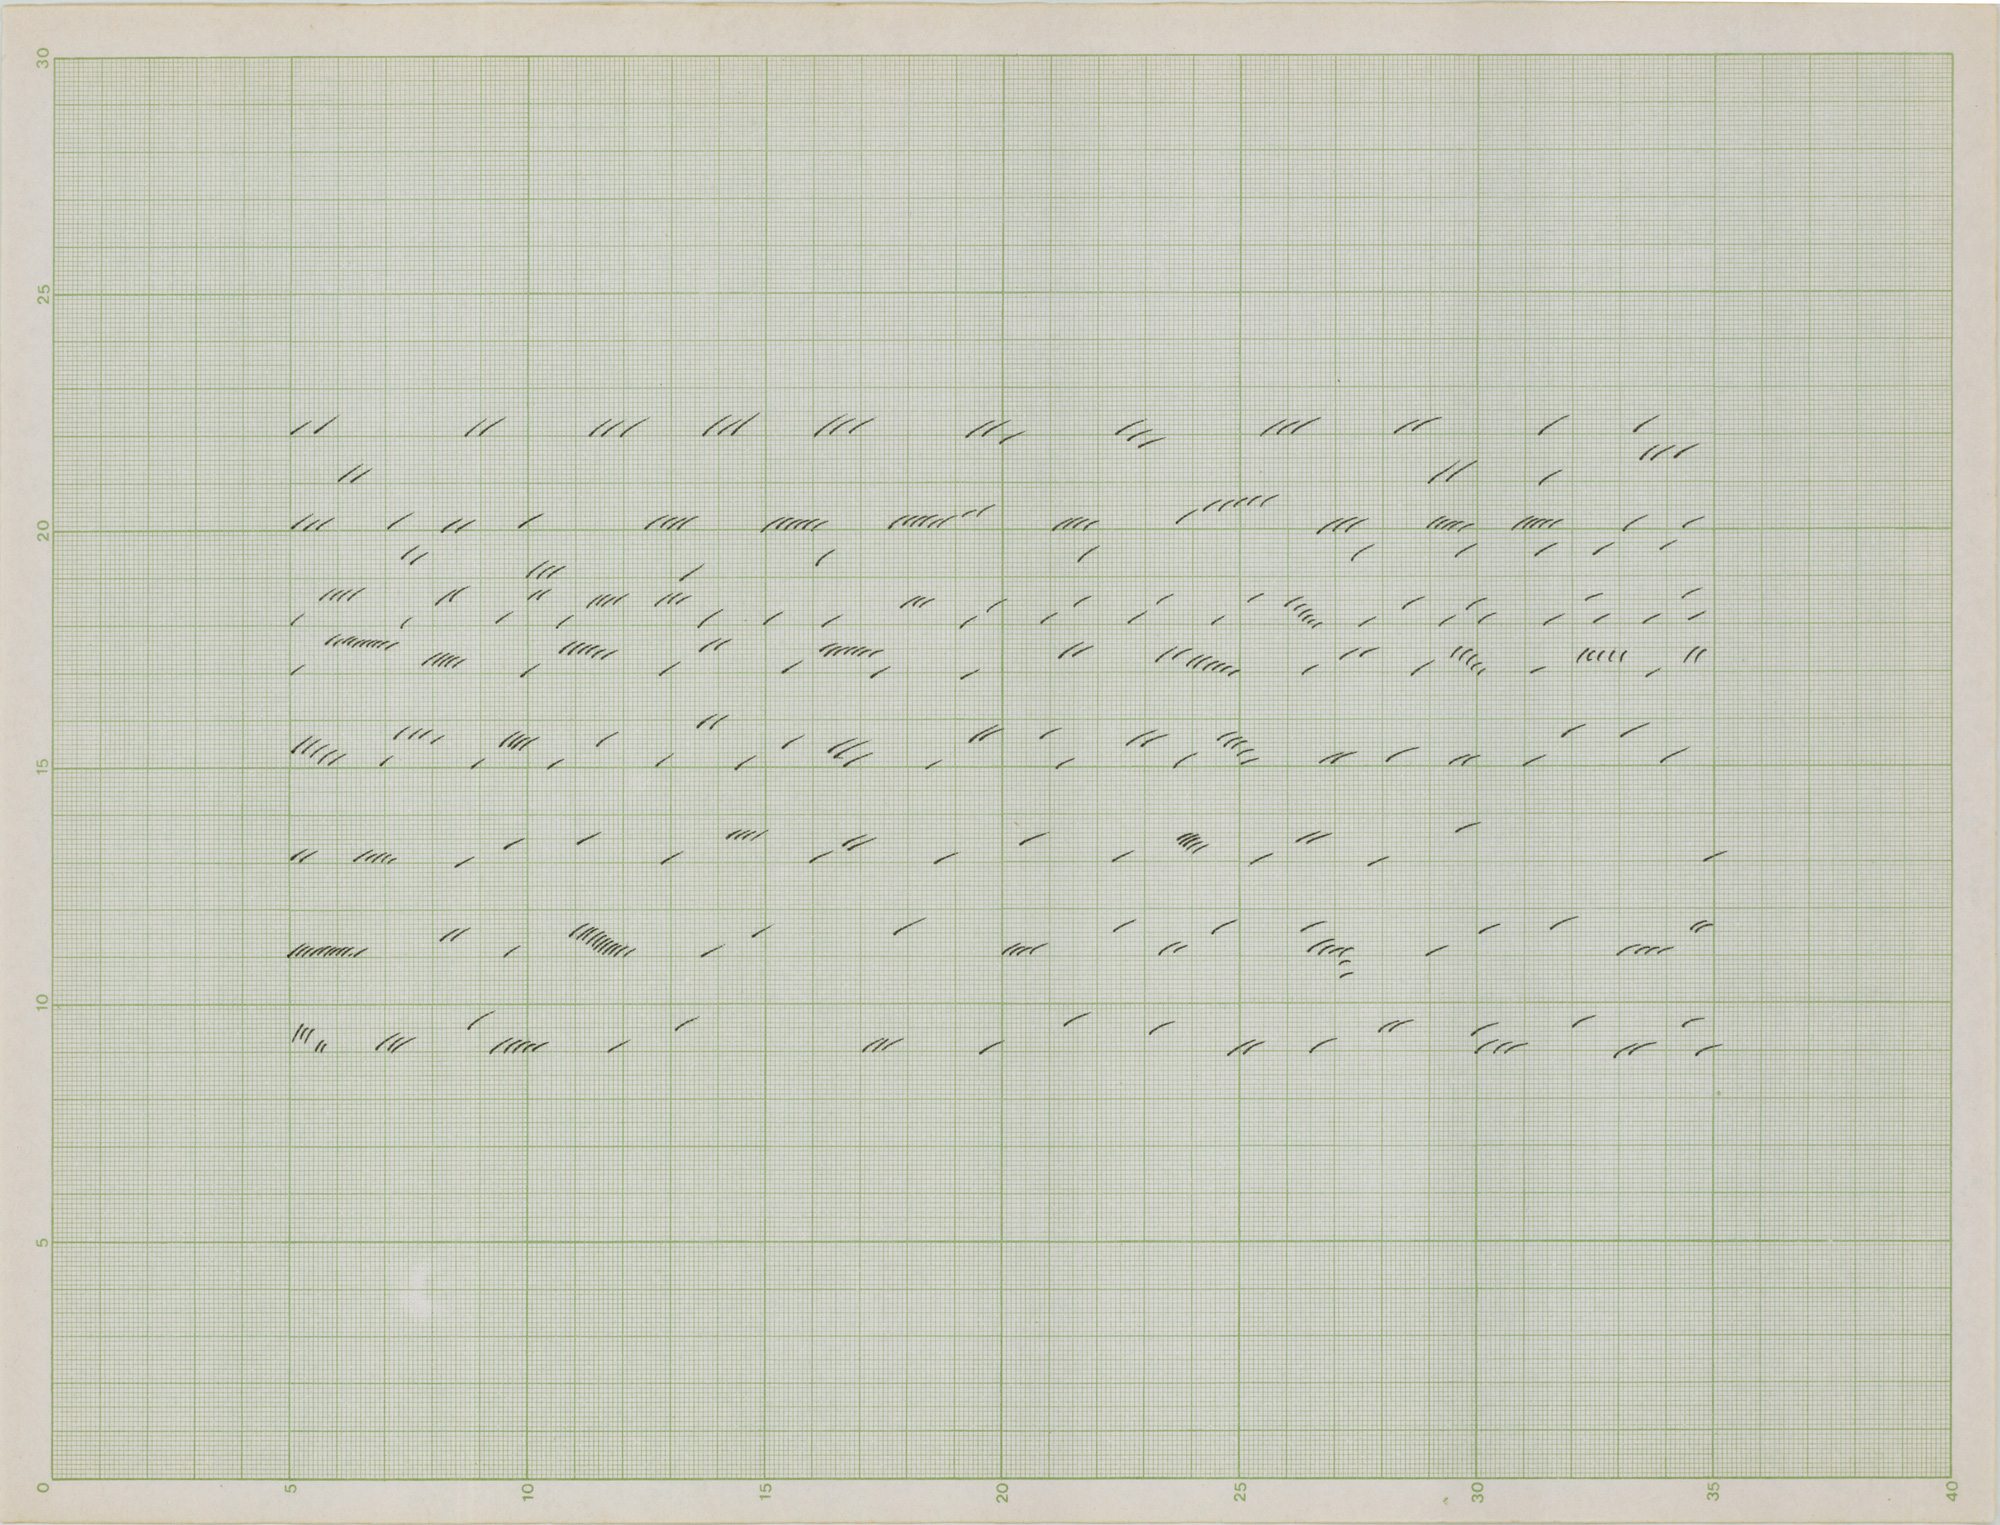 30
25
20
15
10
5
0
0 5 10 15 20 25 30 35 40